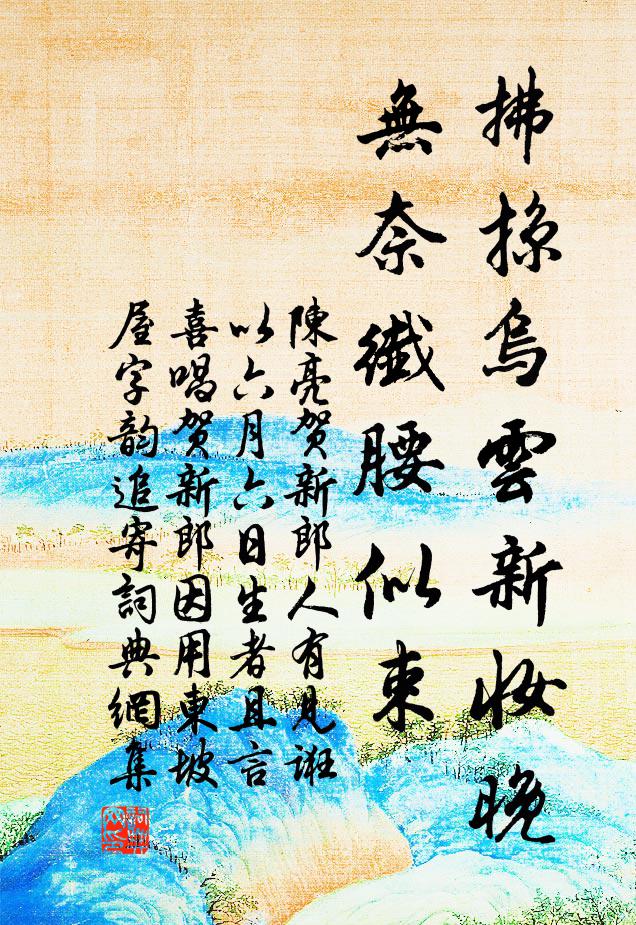 拂掠烏雲新妝晚
無奈纖腰似束
陳亮賀新郎人有見誑
以六月六日生者且言
喜唱賀新郎因用東坡
屋字韵追寄詞典網集